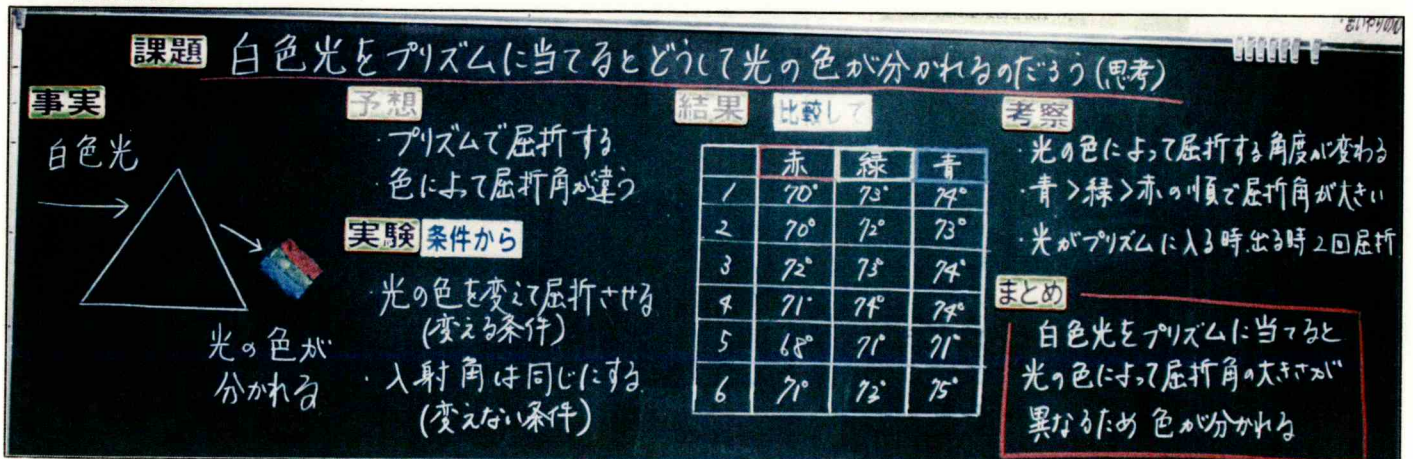 課題 白色光をプリズムに当てるとどうして光の色が分かれるのだろう(思考)
事実
白色光
光の色が
分かれる
予想
・プリズムで屈折する
・色によって屈折角が違う
実験 条件から
・光の色を変えて屈折させる
(変える条件)
・入射角は同じにする
(変えない条件)
結果 比較して
赤 緑 青
1 70° 73° 74°
2 70° 72° 73°
3 72° 73° 74°
4 71° 74° 74°
5 68° 71° 71°
6 71° 73° 75°
考察
・光の色によって屈折する角度が変わる
・青>緑>赤の順で屈折角が大きい
・光がプリズムに入る時、出る時2回屈折
まとめ
白色光をプリズムに当てると
光の色によって屈折角の大きさが
異なるため 色が分かれる